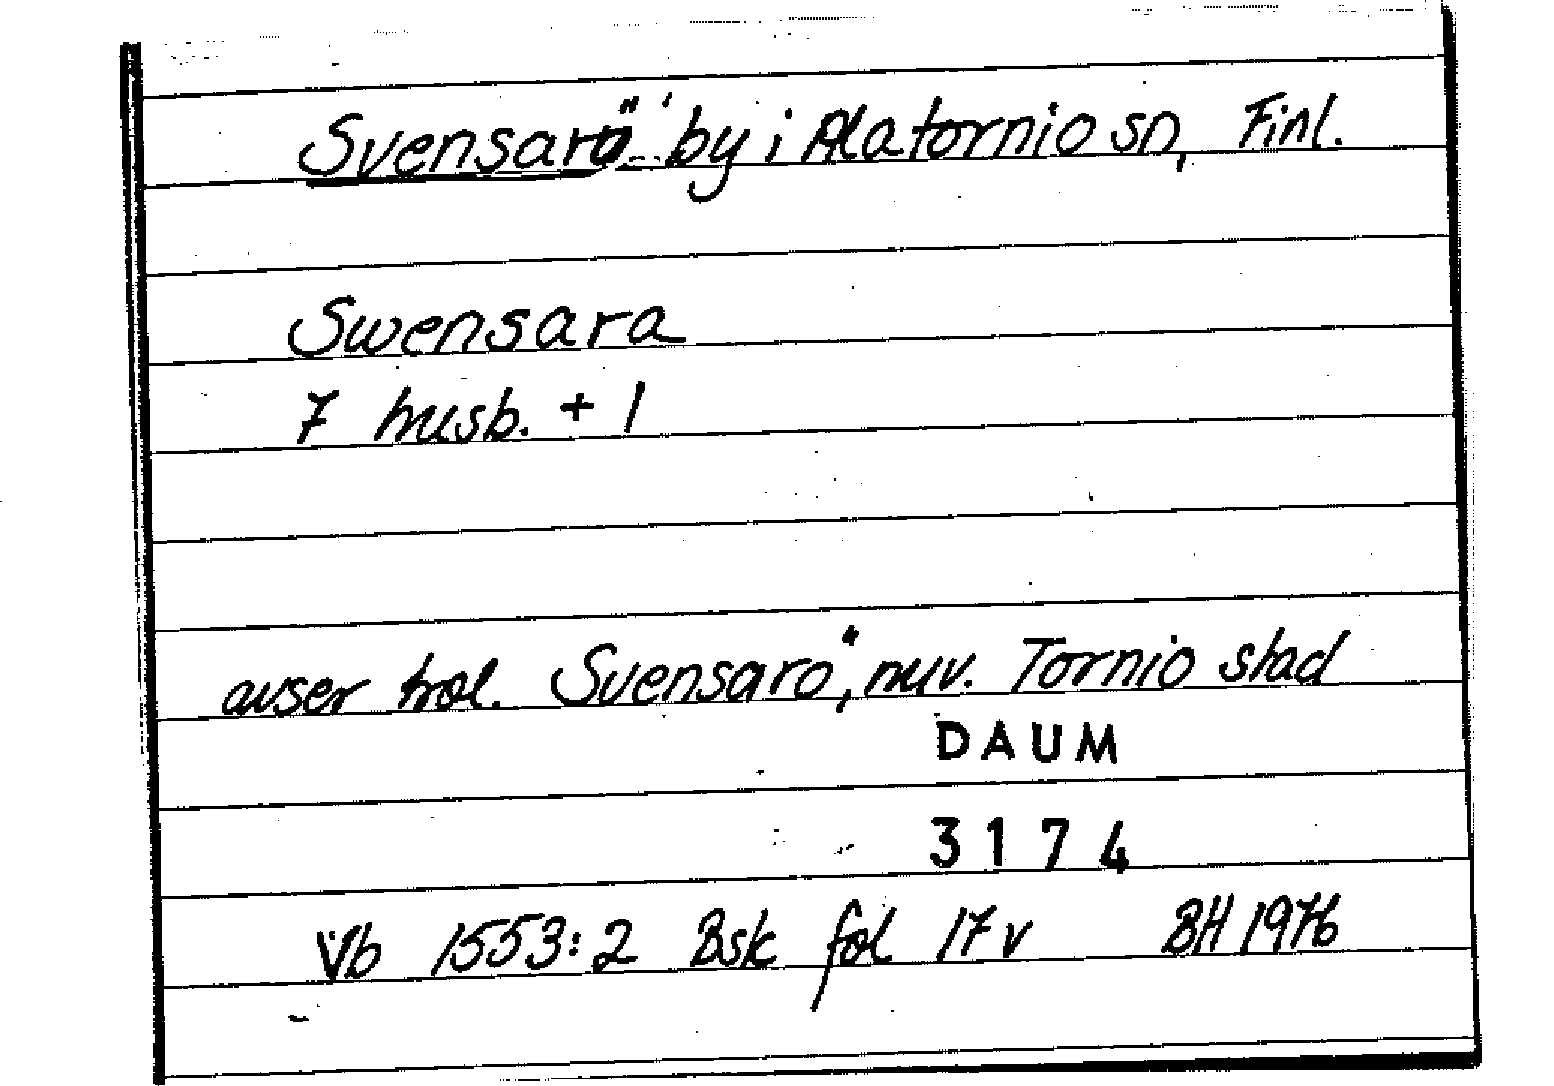 Svensarö by i Alatornio sn, Finl.
Swensara
7 husb. + 1
avser trol. Svensarö, nuv. Tornio stad
DAUM
3174
Vb 1553:2 Bsk fol 17v BH 1976